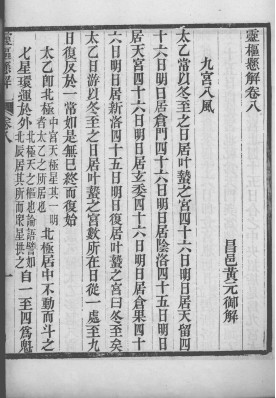 靈樞懸解卷八
昌邑黃元御解
九宮八風
太乙常以冬至之日居叶蟄之宮四十六日明日居天留四
十六日明日居倉門四十六日明日居陰洛四十五日明日
居天宮四十六日明日居玄委四十六日明日居倉果四十
六日明日居新洛四十五日明日復居叶蟄之宮曰冬至矣
太乙日游以冬至之日居叶蟄之宮數所在日從一處至九
日復反於一常如是無已終而復始
太乙卽北極中宮天極星其一明者太乙之所居也北極居中不動而斗之
七星環運於外北極天之樞也論語譬如北辰居其所而眾星拱之自一至四為魁
靈樞懸解
卷八
一